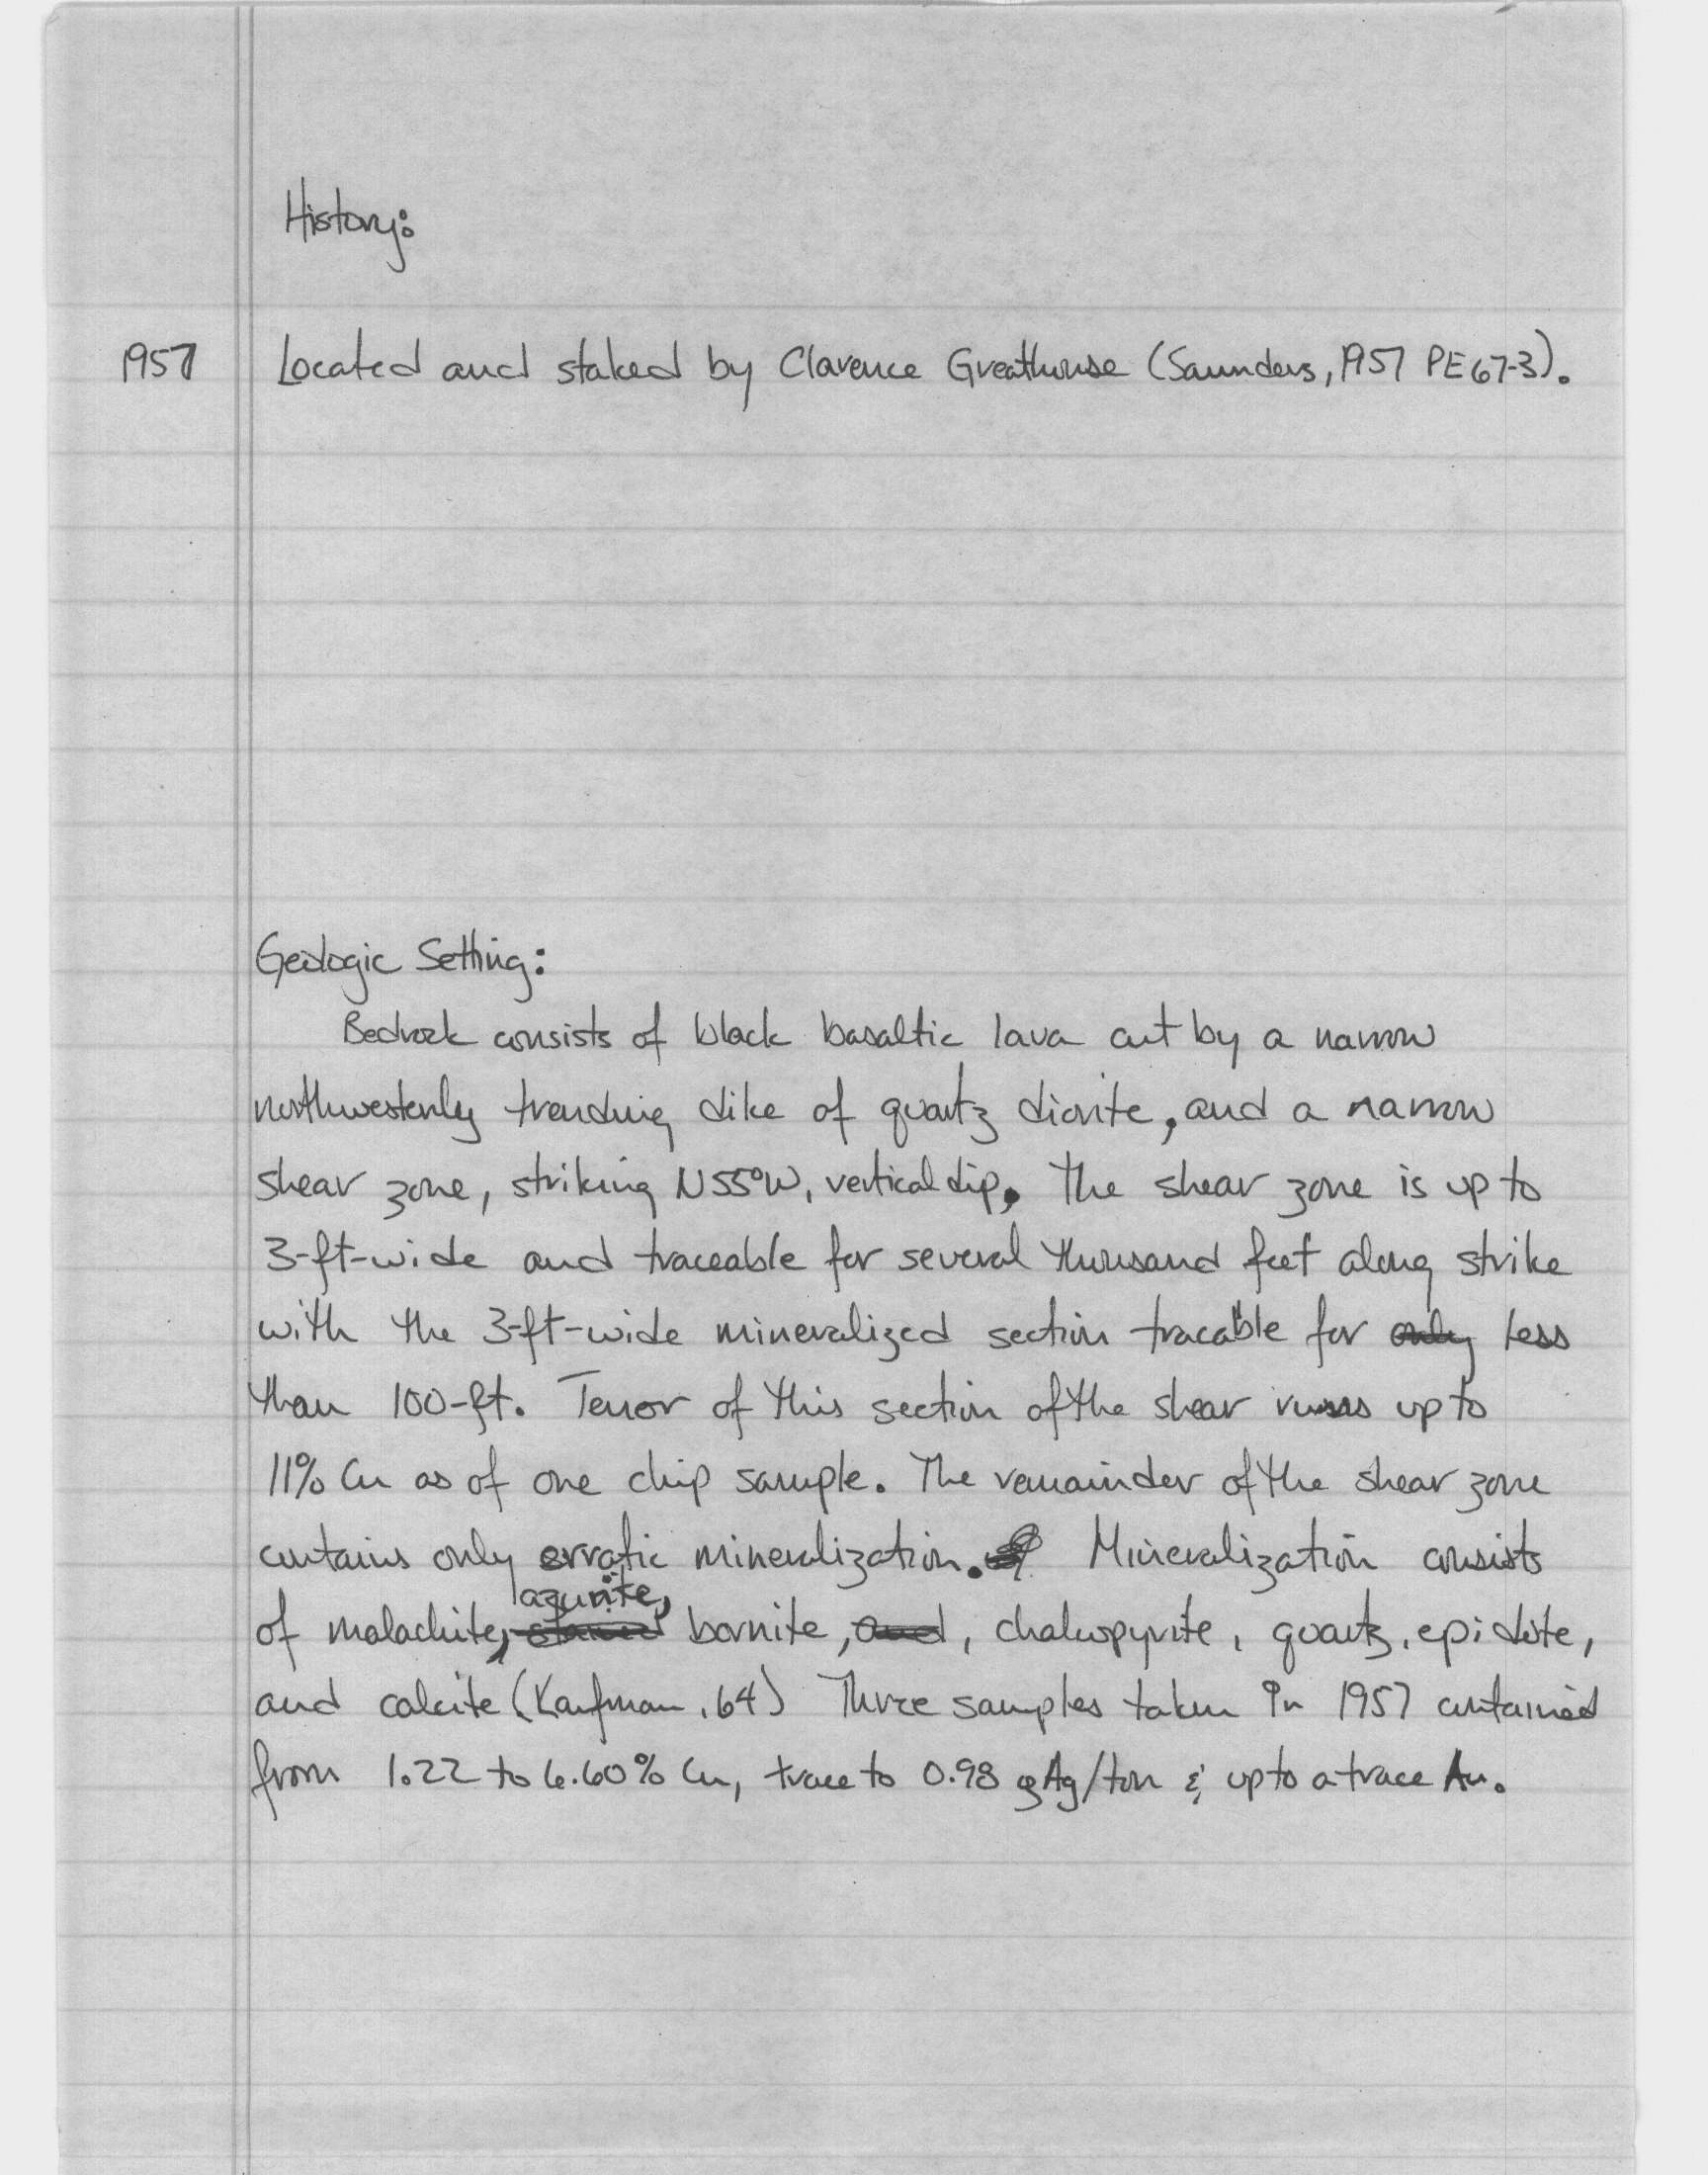 History:
1957 Located and staked by Clarence Greathouse (Saunders, 1957 PE67-3).
Geologic Setting:
Bedrock consists of black basaltic lava cut by a narrow
northwesterly trending dike of quartz diorite, and a narrow
shear zone, striking N55°W, vertical dip. The shear zone is up to
3-ft-wide and traceable for several thousand feet along strike
with the 3-ft-wide mineralized section tracable for only less
than 100-ft. Tenor of this section of the shear runs up to
11% Cu as of one chip sample. The remainder of the shear zone
contains only erratic mineralization. Mineralization consists
azurite,
of malachite, stained bornite, and, chalcopyrite, quartz, epidote,
and calcite (Kaufman, 64) Three samples taken in 1957 contained
from 1.22 to 6.60% Cu, trace to 0.98 g Ag/ton & up to a trace Au.